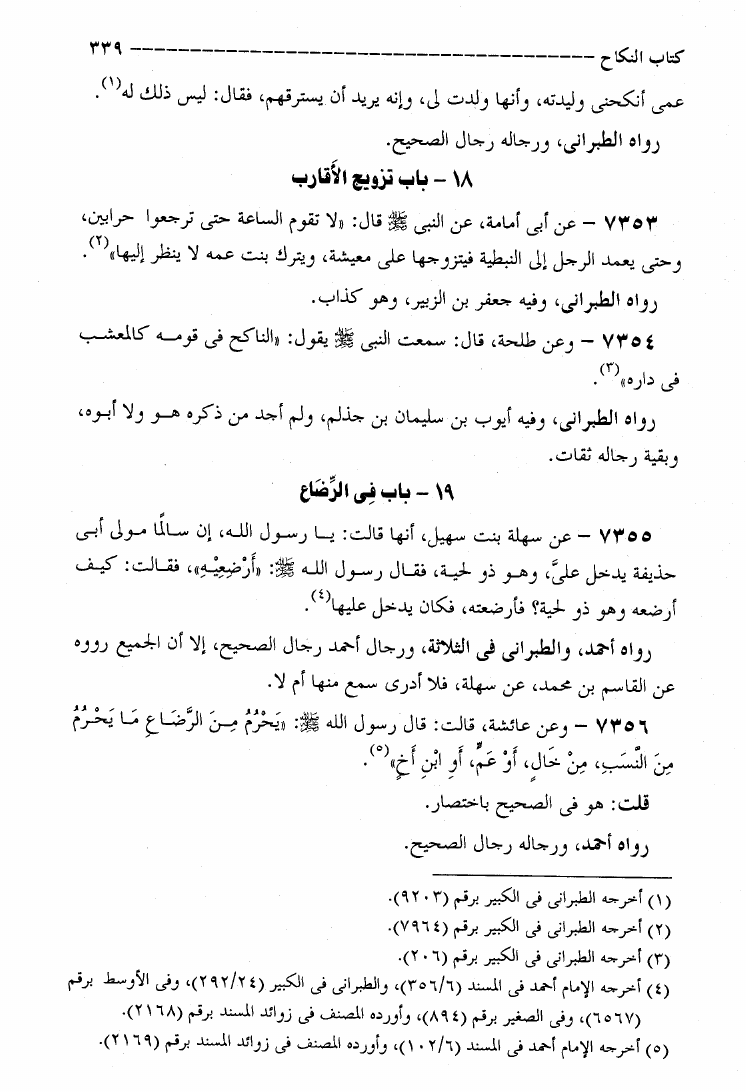 كتاب النكاح ------------------------------------------ ٣٣٩
عمى أنكحنى وليدته، وأنها ولدت لى، وإنه يريد أن يسترقهم، فقال: ليس ذلك له(١).
رواه الطبرانى، ورجاله رجال الصحيح.
١٨ - باب تزويج الأَقارب
٧٣٥٣ - عن أبى أمامة، عن النبى ﷺ قال: «لا تقوم الساعة حتى ترجعوا حرابين،
وحتى يعمد الرجل إلى النبطية فيتزوجها على معيشة، ويترك بنت عمه لا ينظر إليها»(٢).
رواه الطبرانى، وفيه جعفر بن الزبير، وهو كذاب.
٧٣٥٤ - وعن طلحة، قال: سمعت النبى ﷺ يقول: «الناكح فى قومه كالمعشب
فى داره»(٣).
رواه الطبرانى، وفيه أيوب بن سليمان بن جذلم، ولم أجد من ذكره هو ولا أبوه،
وبقية رجاله ثقات.
١٩ - باب فِى الرِّضَاع
٧٣٥٥ - عن سهلة بنت سهيل، أنها قالت: يا رسول الله، إن سالمًا مولى أبى
حذيفة يدخل علىَّ، وهو ذو لحية، فقال رسول الله ﷺ: «أَرْضِعِيْهِ»، فقالت: كيف
أرضعه وهو ذو لحية؟ فأرضعته، فكان يدخل عليها(٤).
رواه أحمد، والطبرانى فى الثلاثة، ورجال أحمد رجال الصحيح، إلا أن الجميع رووه
عن القاسم بن محمد، عن سهلة، فلا أدرى سمع منها أم لا.
٧٣٥٦ - وعن عائشة، قالت: قال رسول الله ﷺ: «يَحْرُمُ مِنَ الرَّضَاعِ مَا يَحْرُمُ
مِنَ النَّسَبِ، مِنْ خَالٍ، أَوْ عَمٍّ، أَوِ ابْنِ أَخٍ»(٥).
قلت: هو فى الصحيح باختصار.
رواه أحمد، ورجاله رجال الصحيح.
(١) أخرجه الطبرانى فى الكبير برقم (٩٢٠٣).
(٢) أخرجه الطبرانى فى الكبير برقم (٧٩٦٤).
(٣) أخرجه الطبرانى فى الكبير برقم (٢٠٦).
(٤) أخرجه الإمام أحمد فى المسند (٣٥٦/٦)، والطبرانى فى الكبير (٢٩٢/٢٤)، وفى الأوسط برقم
(٦٥٦٧)، وفى الصغير برقم (٨٩٤)، وأورده المصنف فى زوائد المسند برقم (٢١٦٨).
(٥) أخرجه الإمام أحمد فى المسند (١٠٢/٦)، وأورده المصنف فى زوائد المسند برقم (٢١٦٩).